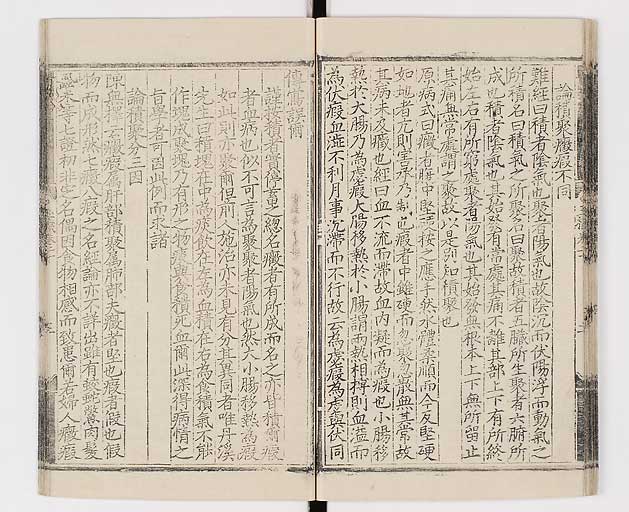 論積聚癥瘕不同
難經曰積者陰氣也聚者陽氣也故陰沉而伏陽浮而動氣之
所積名曰積氣之所聚名曰聚故積者五臟所生聚者六腑所
成也積者陰氣也其始發有常處其痛不離其部上下有所終
始左右有所窮處聚者陽氣也其始發無根本上下無所留止
其痛無常處謂之聚故以是別知積聚也
原病式曰癥者腹中堅硬按之應手然水體柔順而今反堅硬
如地者亢則害承乃制也瘕者中雖硬而忽聚忽散無其常故
其病未及癥也經曰血不流而滯故血內凝而為瘕也小腸移
熱於大腸乃為虙瘕大腸移熱於小腸謂兩熱相搏則血溢而
為伏瘕血澁不利月事沉滯而不行故云為虙瘕為虙與伏同
傳寫誤爾
謹按積者
者血病也似不可言為聚聚者陽氣也然大小腸移熱為瘕
如此則亦聚爾但前人施治亦未見有分其異同者唯丹溪
先生曰積塊在中為痰飲在左為血積在右為食積氣不能
作塊成聚塊乃有形之物痰與食積死血爾此深得病情之
旨學者可因此例而求諸
論積聚分三因
陳無擇云癥瘕屬肝部積聚屬肺部夫癥者堅也瘕者假也假
物而成形然七癥八瘕之名經論亦不詳出雖有蛟蛇鱉肉髮